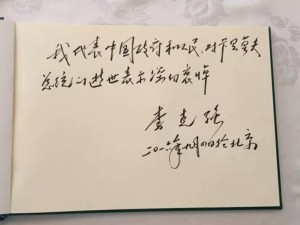 我代表中国政府和人民，对卡里莫夫
总统的逝世表示深切哀悼
李克强
二〇一六年九月 日于北京